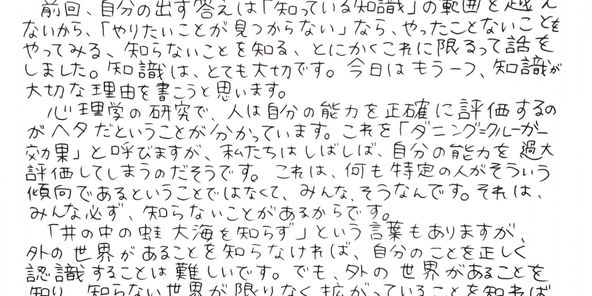 前回、自分の出す答えは「知っている知識」の範囲を越え
ないから、「やりたいことが見つからない」なら、やったことないことを
やってみる、知らないことを知る、とにかくこれに限るって話を
しました。知識は、とても大切です。今日はもう一つ、知識が
大切な理由を書こうと思います。
心理学の研究で、人は自分の能力を正確に評価するの
がヘタだということが分かっています。これを「ダニング=クルーガー
効果」と呼びますが、私たちはしばしば、自分の能力を過大
評価してしまうのだそうです。これは、何も特定の人がそういう
傾向であるということではなくて、みんな、そうなんです。それは、
みんな必ず、知らないことがあるからです。
「井の中の蛙 大海を知らず」という言葉もありますが、
外の世界があることを知らなければ、自分のことを正しく
認識することは難しいです。でも、外の世界があることを
知り、知らない世界が限りなく拡がっていることを知れば